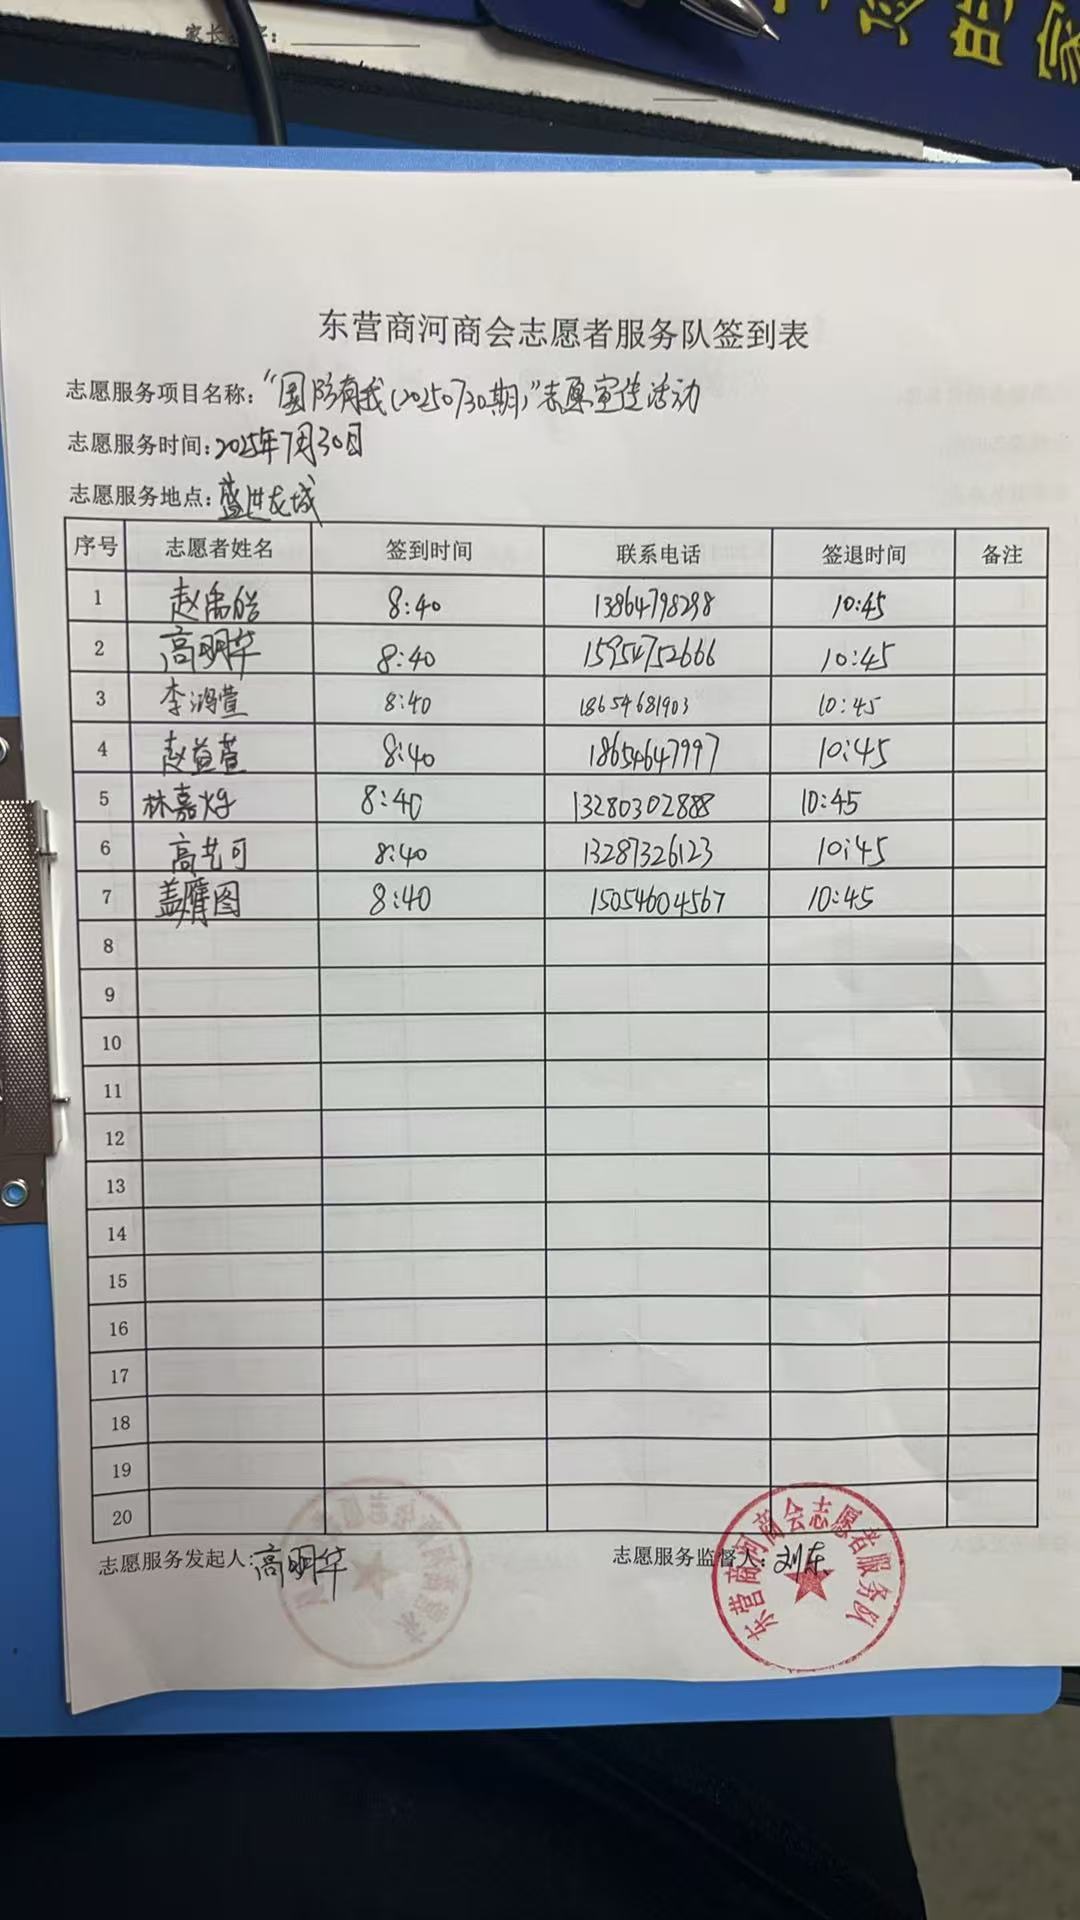 家长签字：
东营商河商会志愿者服务队签到表
志愿服务项目名称：“国防有我（20250730期）”志愿宣传活动
志愿服务时间：2025年7月30日
志愿服务地点：盛世龙城
序号 志愿者姓名 签到时间 联系电话 签退时间 备注
1 赵禹皓 8:40 13864798298 10:45
2 高明华 8:40 15954752666 10:45
3 李鸿萱 8:40 18654681903 10:45
4 赵益萱 8:40 18654647997 10:45
5 林嘉烨 8:40 13280302888 10:45
6 高艺可 8:40 13287326123 10:45
7 盖鹰图 8:40 15054604567 10:45
8
9
10
11
12
13
14
15
16
17
18
19
20
志愿服务发起人：高明华 志愿服务监督人：刘东
东营商河商会志愿者服务队